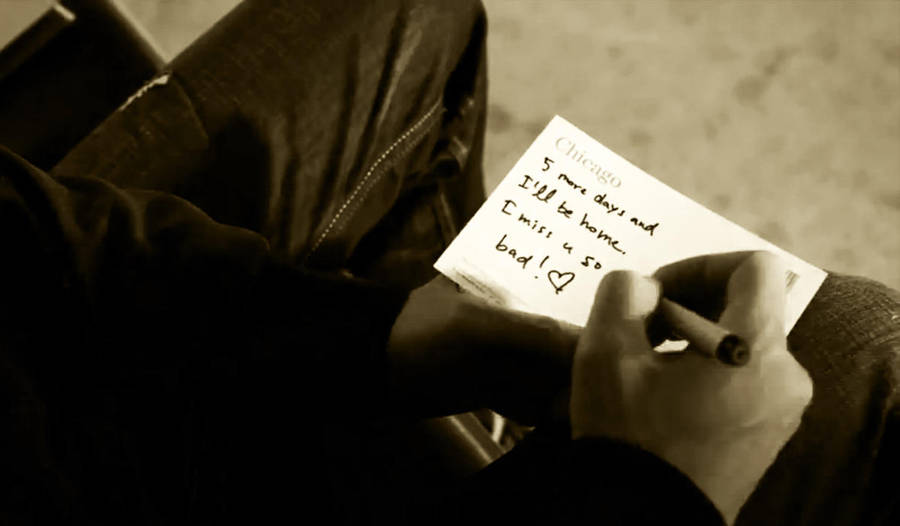 Chicago
5 more days and
I'll be home.
I miss u so
bad! ♡